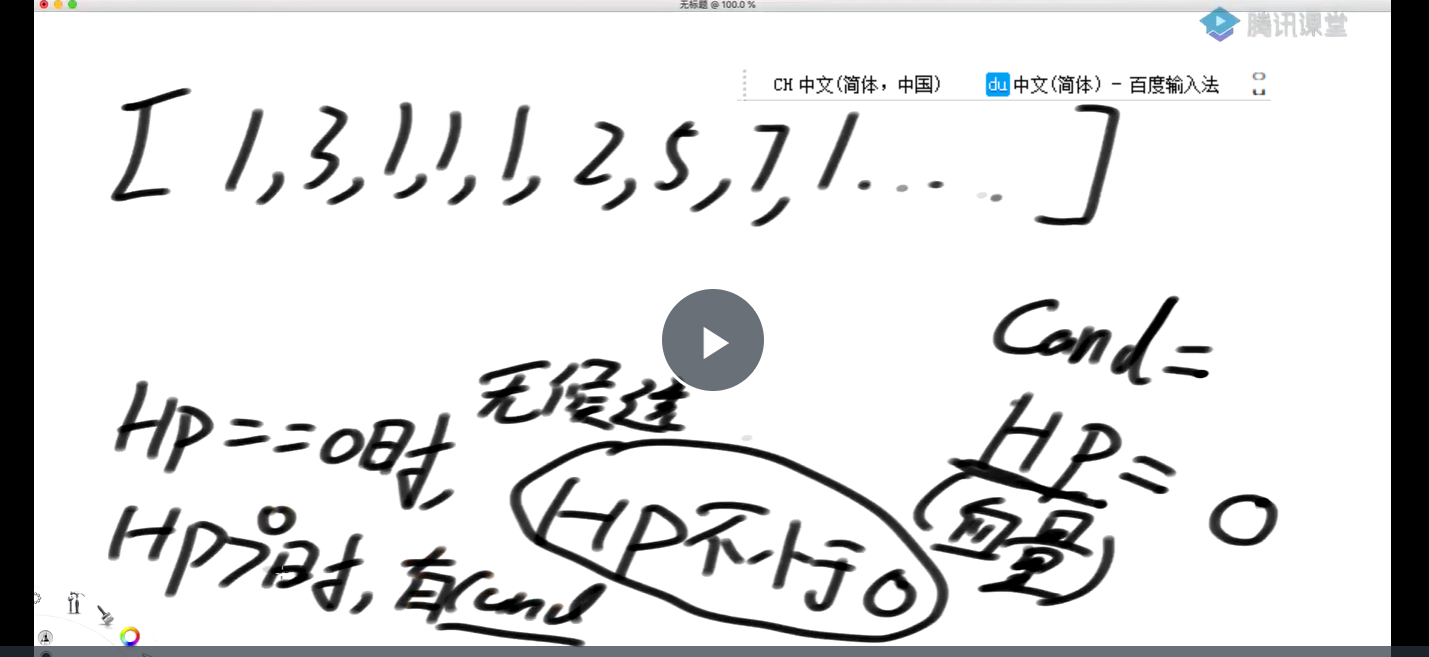 无标题 @ 100.0 %
腾讯课堂
CH 中文(简体，中国) du 中文(简体) - 百度输入法
[ 1,3,1,1,1,2,5,7,1..... ]
Cand=
HP==0时, 无候选
HP=0
(血量)
HP>0时, 有cand
HP不小于0